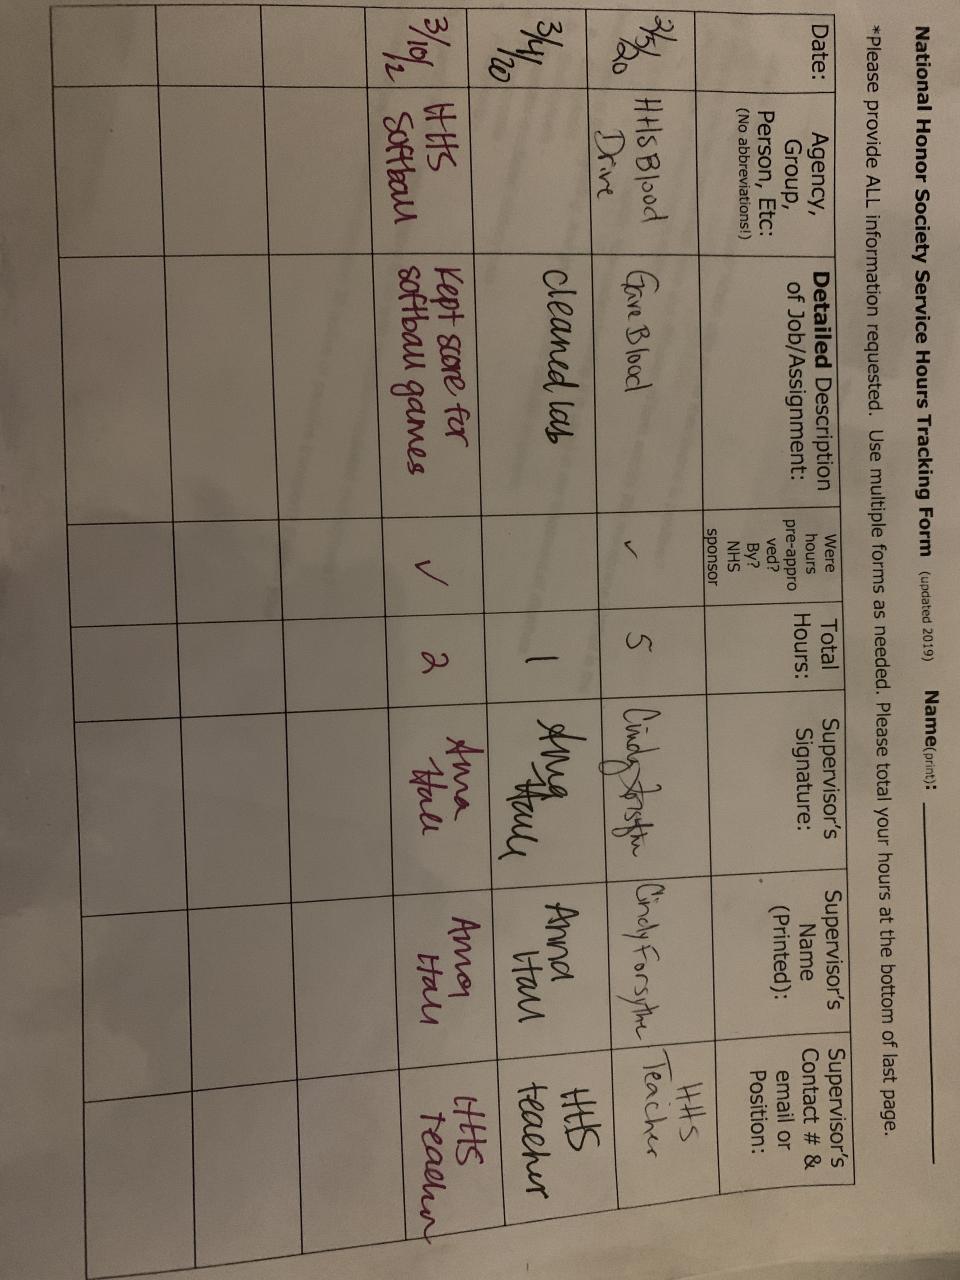 National Honor Society Service Hours Tracking Form (updated 2019) Name(print):
*Please provide ALL information requested. Use multiple forms as needed. Please total your hours at the bottom of last page.
Date:
Agency,
Group,
Person, Etc:
(No abbreviations!)
Detailed Description
of Job/Assignment:
Were
hours
pre-appro
ved?
By?
NHS
sponsor
Total
Hours:
Supervisor's
Signature:
Supervisor's
Name
(Printed):
Supervisor's
Contact # &
email or
Position:
HHS Blood
Drive
Gave Blood
✓
5
Cindy Forsythe
Cindy Forsythe
HHS
Teacher
3/4/
20
cleaned lab
1
Hall
Anna
Hall
HHS
teacher
3/10/
2
HHS
Softball
Kept score for
softball games
✓
2
Anna
Hall
Anna
Hall
HHS
teacher